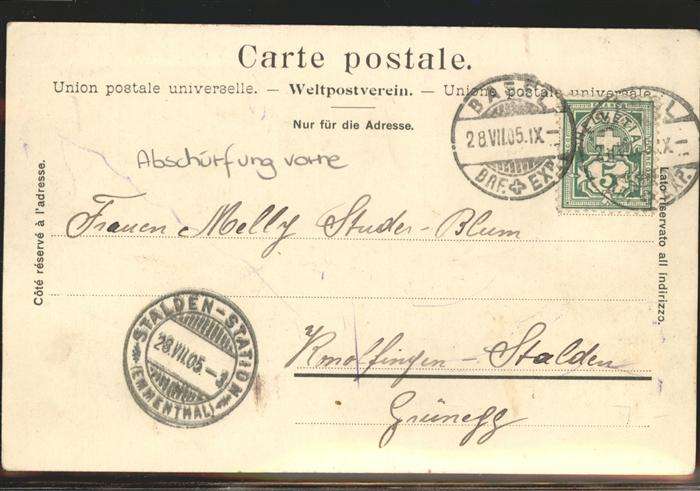 Carte postale.
Union postale universelle. — Weltpostverein. — Unione postale universale.
Nur für die Adresse.
Côté réservé à l'adresse.
Lato riservato all indirizzo.
Abschürfung vorne
BASEL
28.VII.05.IX–
BRF. EXP.
HELVETIA
FRANCO
5
Frauen Melly Studer-Blum
Kmolfingen-Stalden
Grünegg
STALDEN-STATION
28.VII.05.–3
(EMMENTHAL)